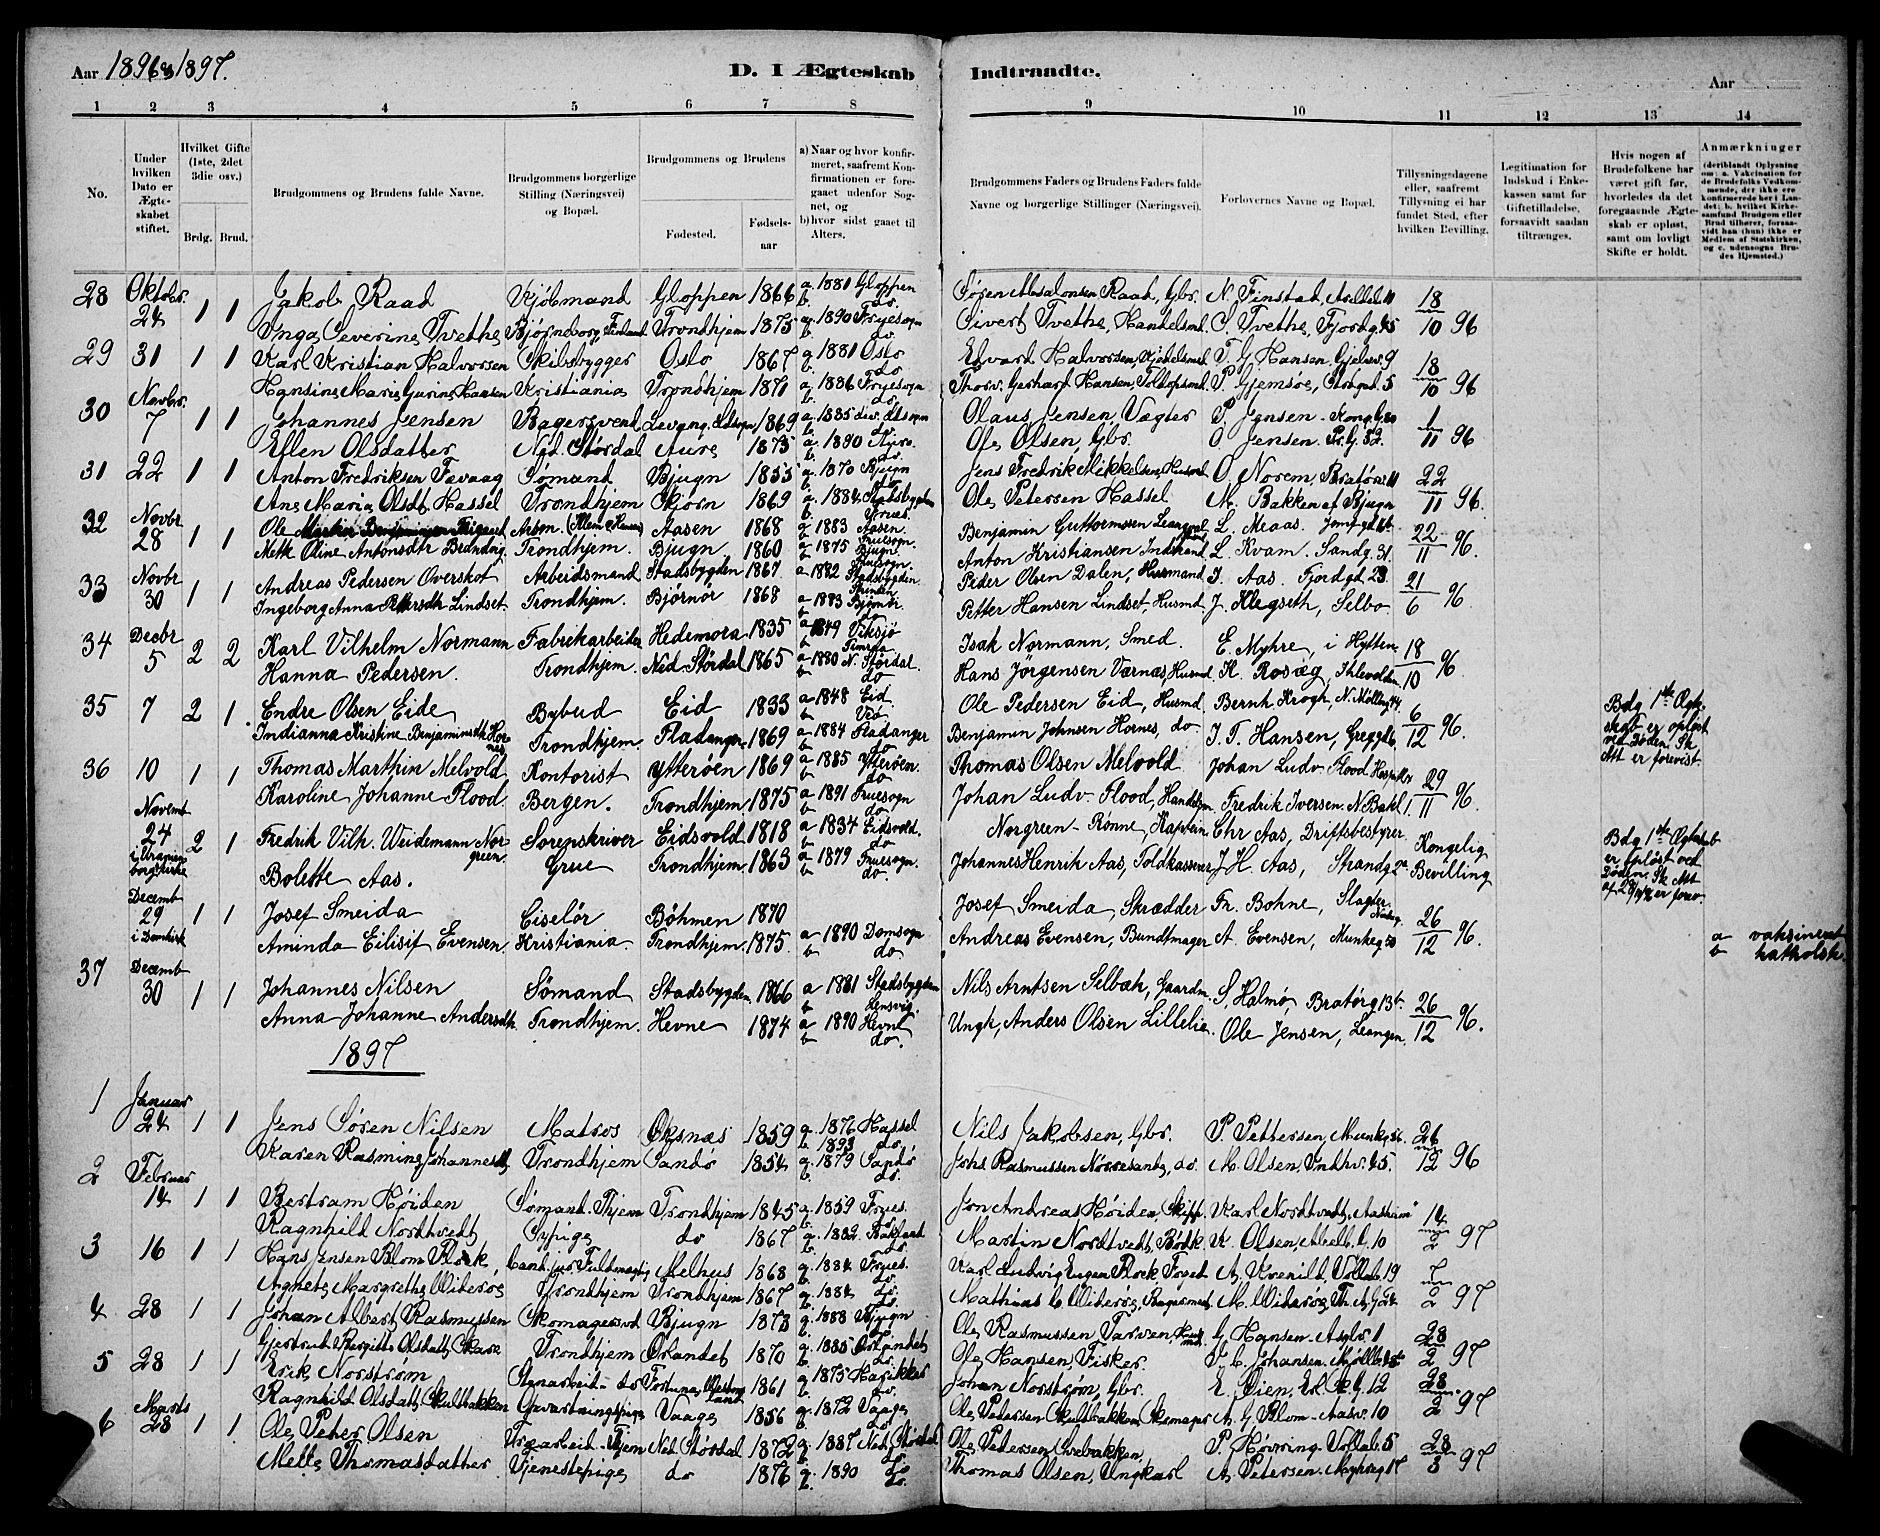 Aar 1896 og 1897.
D. I Ægteskab Indtraadte.
Aar
1 2 3 4 5 6 7 8 9 10 11 12 13 14
No.
Under hvilken Dato er Ægteskabet stiftet.
Hvilket Gifte (1ste, 2det 3die osv.)
Brdg. Brud.
Brudgommens og Brudens fulde Navne.
Brudgommens borgerlige Stilling (Næringsvei) og Bopæl.
Brudgommens og Brudens
Fødested. Fødselsaar
a) Naar og hvor konfirmeret, saafremt Konfirmationen er foregaaet udenfor Sognet, og b) hvor sidst gaaet til Alters.
Brudgommens Faders og Brudens Faders fulde Navne og borgerlige Stillinger (Næringsvei).
Forlovernes Navne og Bopæl.
Tillysningsdagene eller, saafremt Tillysning ei har fundet Sted, efter hvilken Bevilling.
Legitimation for Indskud i Enkekassen samt for Giftetilladelse, forsaavidt saadan tiltrænges.
Hvis nogen af Brudefolkene har været gift før, hvorledes da det foregaaende Ægteskab er opløst, samt om lovligt Skifte er holdt.
Anmærkninger (deriblandt Oplysning om: a. Vakcination for de Brudefolks Vedkommende, der ikke ere konfirmerede her i Landet; b. hvilket Kirkesamfund Brudgom eller Brud tilhører, forsaavidt han (hun) ikke er Medlem af Statskirken, og c. udensogns Brudes Hjemsted.)
28 Oktobr. 24 1 1 Jakob Raad Kjöbmand Gloppen 1866 a. 1881 Gloppen b. do. Sören Absalonsen Raad, Gbr. N. Finstad, 18/10 96
Inga Severine Tvethe Björneborg, Finland Trondhjem 1873 a. 1890 Fruesogn b. do. Sivert Tvethe, Handelsmd. S. Tvethe, Fjordg. 45
29 31 1 1 Karl Kristian Halvorsen Skibsbygger Oslo 1867 a. 1881 Oslo b. do Edvard Halvorsen, T. G. Hansen, 9 18/10 96
Hansine Marie Gurine Hansen Kristiania Trondhjem 1871 a. 1886 Fruesogn b. do. Thorv. Gerhard Hansen, Toldopsmd. P. Gjemsøe, 5
30 Novbr. 7 1 1 Johannes Jensen Bagersvend Levang. 1869 a. 1885 b. do. Olaus Jensen Vagter P. Jensen 1/11 96
Ellen Olsdatter Ned. Stördal Aure 1873 a. 1890 Aure b. do. Ole Olsen, Gbr. O. Jensen. 32.
31 22 1 1 Anton Fredriksen Tevaag Sømand Bjugn 1853 a. 1870 Bjugn b. do Jens Fredrik Mikkelsen, Husmd. O. Norem, 22/11 96.
Ane Maria Olsdt. Hassel Trondhjem Skjørn 1869 a. 1884 Stadsbygden b. Ole Petersen Hassel M. Bakken af Bjugn
32 Novbr 28 1 1 Ole Aasen 1868 a 1883 Aasen. b Fruesogn. Benjamin Guttormssen L. Meaas. 22/11 96.
Mette Oline Antonsdtr Trondhjem. Bjugn 1860 a 1875 Bjugn. b Fruesogn. Anton Kristiansen Indstrand L. Kvam. Sandg. 31.
33 Novbr 30 1 1 Andreas Pedersen Overskot Arbeidsmand Stadsbygden 1867. a 1882 Stadsbygden. Peder Olsen Dalen, Husmand J. Aas. Fjordgd. 23. 21/6 96.
Ingeborg Anna Petersdtr Lindset Trondhjem. Björnör 1868 a 1883 Björnör. b do Petter Hansen Lindset, Husmd. J. Klegseth, Selbo
34 Decbr 5 2 2 Karl Vilhelm Normann Fabrikarbeider Hedemora 1835 a 1849 Viksjö b Isak Normann, Smed. E. Myhre, i Hytten. 18/10 96.
Hanna Pedersen. Trondhjem. Ned. Stördal 1865 a 1880 N. Stördal. b do Hans Jörgensen Værnæs, Husmd. K. Rosæg,
35 7 2 1. Endre Olsen Eide Bybud Eid 1833 a 1848 Eid b Ole Pedersen Eid, Husmd. Bernh. Krogh, N. 6/12 96. Bdg 1ste Ægteskab er opløst ved Døden. Sk. Att er forevist.
Indianna Kristine Benjaminsdtr Hornes Trondhjem. Fladanger. 1869 a 1884 Fladanger b do Benjamin Johnsen Hornes, do. J. T. Hansen,
36 10 1 1 Thomas Marthin Melvold Kontorist Ytterøen 1869 a 1885 Ytterøen. b do Thomas Olsen Melvold Johan Ludv. Flood 29/11 96.
Karoline Johanne Flood. Bergen. Trondhjem 1875 a 1891 Fruesogn b do Johan Ludv. Flood, Fredrik Iversen.
Novembr 24 i Uranienborg Kirke 2 1 Fredrik Vilh. Weidemann Norgreen. Sorenskriver Eidsvold 1818 a 1834 Eidsvold. b do Norgreen-Rønne, Kaptein. Chr Aas, Driftsbestyrer. Kongelig Bevilling Bdg 1ste Ægteskab er opløst ved Døden. Sk. Att er forev.
Bolette Aas. Grue Trondhjem. 1863 a 1879 Fruesogn. b do. Johannes Henrik Aas, Toldkasserer J. H. Aas, Strandg.
Decemb 29 i Domkirk 1 1 Josef Smeida Ciselör Böhmen 1870 Josef Smeida, Skrædder Fr. Bohne, Slagter. 26/12 96. a vaksineret b katholsk.
Aminda Eilisif Evensen. Kristiania Trondhjem. 1875. a 1890 Domsogn b do Andreas Evensen, Bundtmager A. Evensen, Munkeg 50
37 Decemb 30 1 1 Johannes Nilsen Sömand Stadsbygden 1866 a 1881 Stadsbygden b Lensvig. Nils Arntsen Selbæk, Gaardm. S. Halmö, Bratörg 13b 26/12 96.
Anna Johanne Andersdtr. Trondhjem. Hevne 1874 a 1890 Hevne b do. Ungk. Anders Olsen Lillelie. Ole Jensen, Leangen.
1897
1 Januar 24 1 1 Jens Søren Nilsen Matros Øksnæs 1859 a. 1876 Hassel b. 1893 do. Nils Jakobsen, Gbr. P. Pettersen, Munkg. 26/12 96
Karen Rasmine Johannesdt. Trondhjem Sandö 1854 a. 1879 Sandö b. do. Johs Rasmussen Nørresand, do. M. Olsen,
2 Februar 14 1 1 Bertram Høiden Sømand. Thjem Trondhjem 1845 a. 1859 Frues. b. do. Jon Andreas Høiden, Skipp. Karl Nordtvedt, 14/2 97
Ragnhild Nordtvedt Sypige do 1867 a. 1882 Bakland. b. do. Martin Nordtvedt, Bødk. K. Olsen, 10
3 16 1 1 Hans Jensen Blom Flock, Cand. jur. Fuldmægtig Melhus 1868 a. 1884 Frues. b. do. Karl Ludvig Eugen Flock, Foged A. Kvenild, Vollab. 19 7/2 97
Agnete Margrethe Widerøe Trondhjem Trondhjem 1867 a. 1884 do. b. do. Mathias C. Widerøe, M. Widerøe,
4 28 1 1 Johan Albert Rasmussen Skomagersvd Bjugn 1873 a. 1888 Bjugn b. do. Ole Rasmussen Tarven, Husmd. G. Hansen 1 28/2 97
Gjertrud Bergitte Olsdatt. Skare Trondhjem Ørlandet 1870 a. 1885 Ørlandet b. do. Ole Hansen, Fisker. C. Johansen.
5 28 1 1 Erik Norstrøm do 1861 a. 1875 b. do. Johan Norstrøm, Gbr. E. Øien, 12 28/2 97
Ragnhild Olsdatt. Skultbakken Opvartningspige Vaage 1856 a. 1872 Vaage b. do. Ole Petersen Skultbakken, Skomager A. G. Blom 10
6 Marts 28 1 1 Ole Peter Olsen Thjem Ned. Størdal 1872 a. 1887 Ned. Størdal b. do. Ole Petersen P. Høvring. Vollab. 5 28/3 97
Mette Thomasdatter Tjenestepige do 1876 a. 1890 do b. do. Thomas Olsen, Ungkarl A. Petersen.